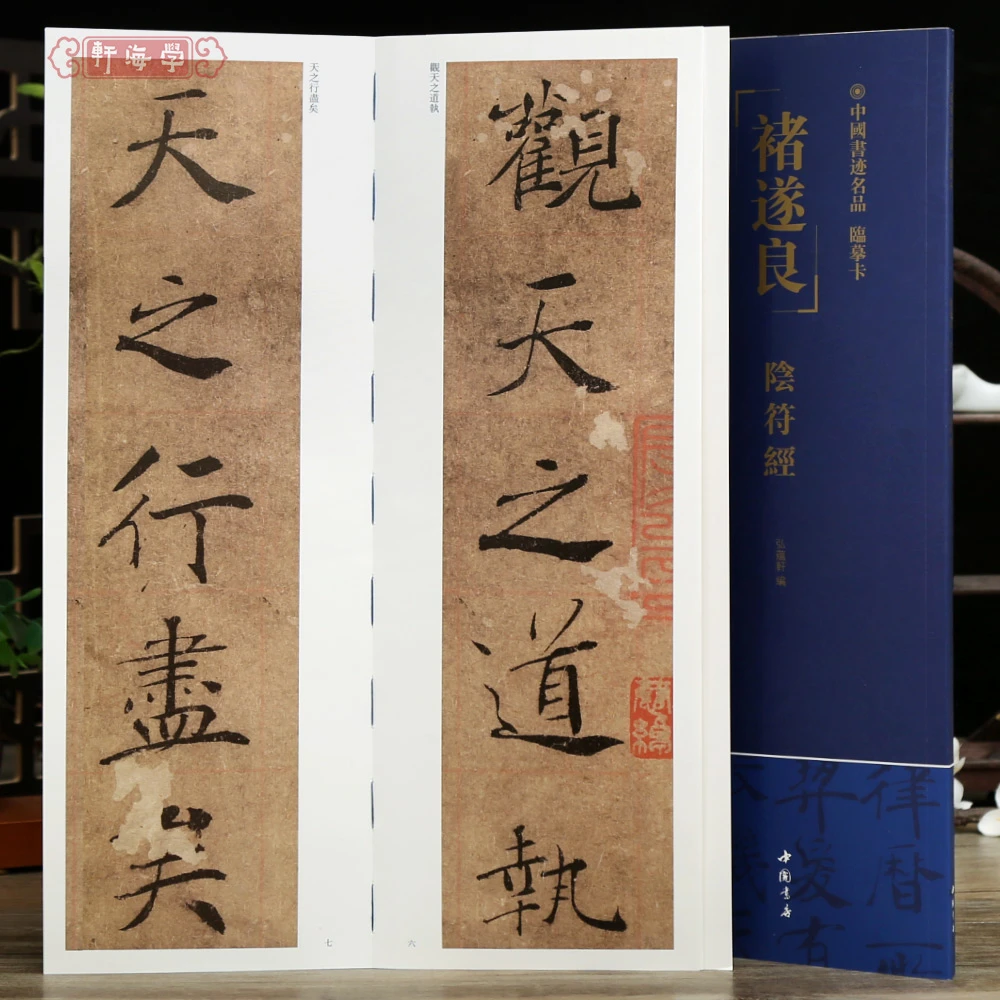 學海軒
觀天之道執
觀天之道執
六
天之行盡矣
天之行盡矣
七
中國書迹名品 臨摹卡
褚遂良
陰符經
弘蕴軒 编
中国书店
律曆